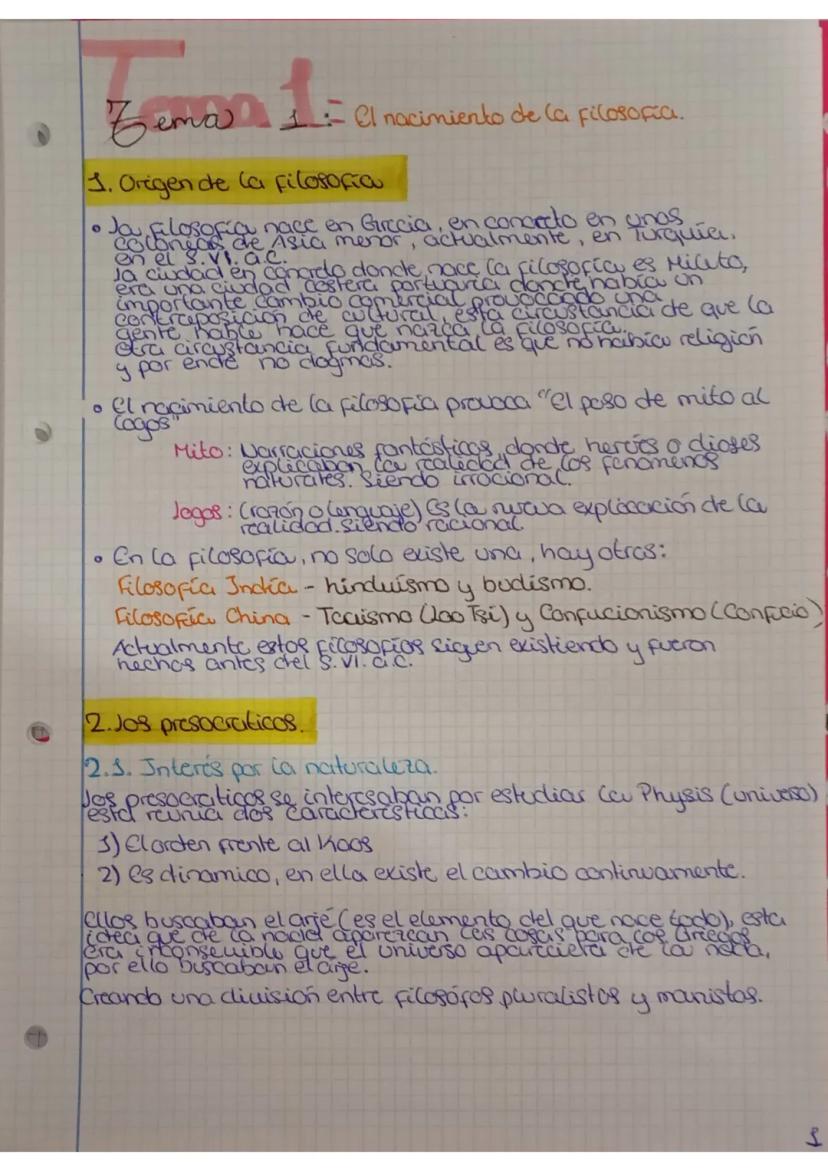 Tema 1
Tema 1:= El nacimiento de la filosofía.
1. Origen de la filosofía
• La filosofía nace en Grecia, en concreto en unas
colonias de Asia menor, actualmente, en Turquía.
en el S.VI. a.C.
La ciudad en concreto donde nace la filosofía es Mileto,
era una ciudad costera portuaria donde había un
importante cambio comercial provocando una
contraposición de cultural, esta circustancia de que la
gente hable hace que nazca la filosofía.
Otra circustancia fundamental es que no había religión
y por ende no dogmas.
• El nacimiento de la filosofía provoca "El paso de mito al
logos"
Mito: Narraciones fantásticas, donde heroes o dioses
explicaban la realidad de los fenomenos
naturales. Siendo irracional.
Logos: (razón o lenguaje) Es la nueva explicación de la
realidad. Siendo racional.
• En la filosofía, no solo existe una, hay otras:
Filosofía India - hinduísmo y budismo.
Filosofía China - Taoismo (Loo Tsi) y Confucionismo (Confucio)
Actualmente estas filosofías siguen existiendo y fueron
hechas antes del S.VI. a.C.
2. Los presocraticos.
2.1. Interés por la naturaleza.
Los presocraticos se interesaban por estudiar la Physis (universo)
esta reunía dos características:
1) El orden frente al Kaos
2) Es dinamico, en ella existe el cambio continuamente.
Ellos buscaban el arjé (es el elemento del que nace todo), esta
idea que de la nada aparezcan las cosas para los Griegos
era inconseuible que el universo apareciera de la nada,
por ello buscaban el arje.
Creando una división entre filosófos pluralistas y monistas.
1